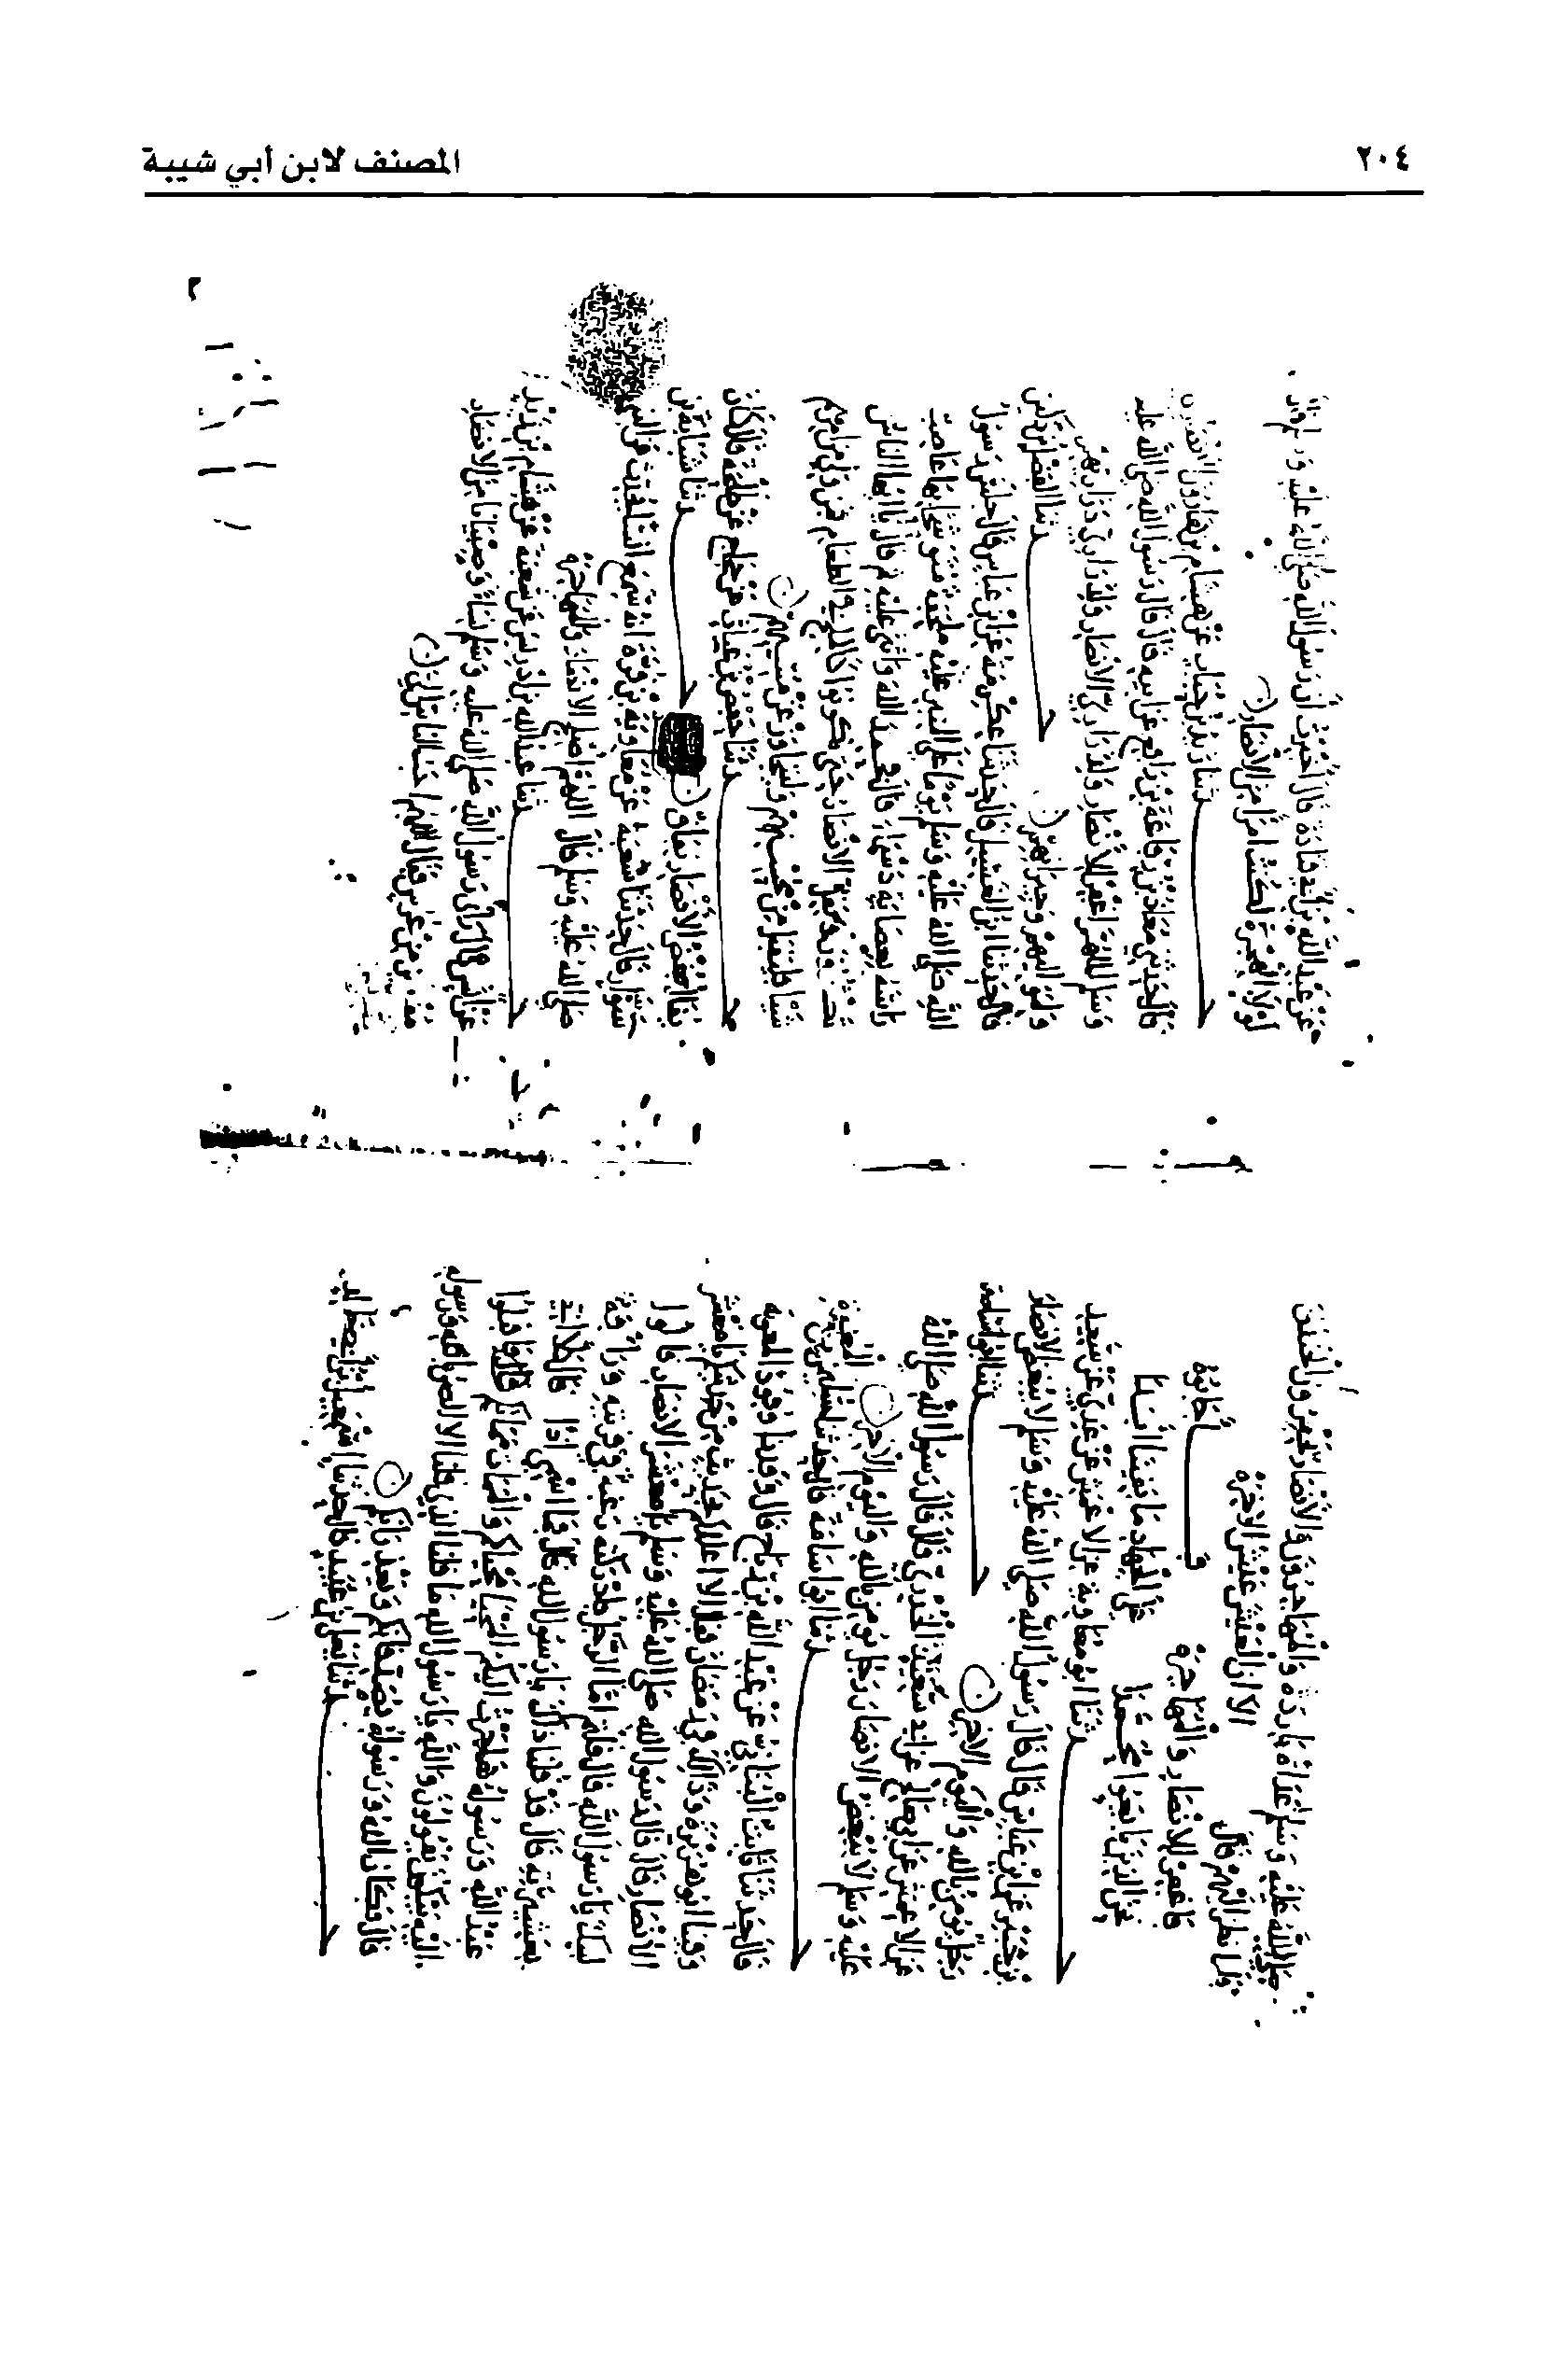 ٢٠٤
المصنف لابن أبي شيبة
صلى الله عليه وسلم غداة باردة والمهاجرون والانصار يحفرون الخندق
فلما نظر اليهم قال الا ان العيش عيش الاخرة
فاغفر للانصار والمهاجرة فاجابوه
نحن الذين بايعوا محمدا على الجهاد ما بقينا ابدا
حدثنا ابو معاوية عن الاعمش عن عدي عن سعيد
بن جبير عن ابن عباس قال قال رسول الله صلى الله عليه وسلم لا يبغض الانصار
رجل يؤمن بالله واليوم الاخر حدثنا ابو اسامة
عن الاعمش عن ابي صالح عن ابي سعيد الخدري قال قال رسول الله صلى الله
عليه وسلم لا يبغض الانصار رجل يؤمن بالله واليوم الاخر
حدثنا ابو اسامة قال حدثنا سليمن بن المغيرة
قال حدثنا ثابت البناني عن عبد الله بن رباح قال وفدنا وفودا لمعوية
وفينا ابو هريرة وذلك في رمضان فقال الا اعلمكم بحديث من حديثكم يا معشر
الانصار قال قال رسول الله صلى الله عليه وسلم يا معشر الانصار قالوا
لبيك يا رسول الله قال قلتم اما الرجل فادركته رغبة في قريته ورافة
بعشيرته قال قد قلنا ذاك يا رسول الله قال فما اسمي اذا كلا اني
عبد الله ورسوله هاجرت اليكم المحيا محياكم والممات مماتكم قال فاقبلوا
اليه يبكون يقولون والله يا رسول الله ما قلنا الذي قلنا الا الضن بالله وبرسوله
قال فان الله ورسوله يصدقانكم ويعذرانكم
حدثنا يعلى بن عبيد قال حدثنا اسمعيل بن ابي خالد
عن عبد الله بن ابي قتادة قال اخبرت ان رسول الله صلى الله عليه وسلم قال
لولا الهجرة لكنت امرا من الانصار
حدثنا زيد بن حباب عن هشام بن هارون الانصاري
قال حدثني معاذ بن رفاعة بن رافع عن ابيه قال قال رسول الله صلى الله عليه
وسلم اللهم اغفر للانصار ولذراري الانصار ولذراري ذراريهم
ولمواليهم وجيرانهم حدثنا الفضل بن دكين
قال حدثنا ابن الغسيل قال حدثنا عكرمة عن ابن عباس قال جلس رسول
الله صلى الله عليه وسلم يوما على المنبر عليه ملحفة متوشحا بها عاصب
راسه بعصابة دسماء قال فحمد الله واثنى عليه ثم قال يا ايها الناس
تكثرون وتقل الانصار حتى يكونوا كالملح في الطعام فمن ولي من امرهم
شيا فليقبل من محسنهم وليتجاوز عن مسيئهم
حدثنا حفص بن غياث عن حجاج عن طلحة قال كان
يقال بغض الانصار نفاق حدثنا شبابة بن
سوار قال حدثنا شعبة عن معاوية بن قرة انه سمع انسا يحدث عن النبي
صلى الله عليه وسلم قال اللهم اصلح الانصار والمهاجرة
حدثنا عبد الله بن ادريس عن شعبة عن هشام بن زيد
عن انس قال راى رسول الله صلى الله عليه وسلم نساء وصبيانا من الانصار
من عرس فقال اللهم احب الناس الي